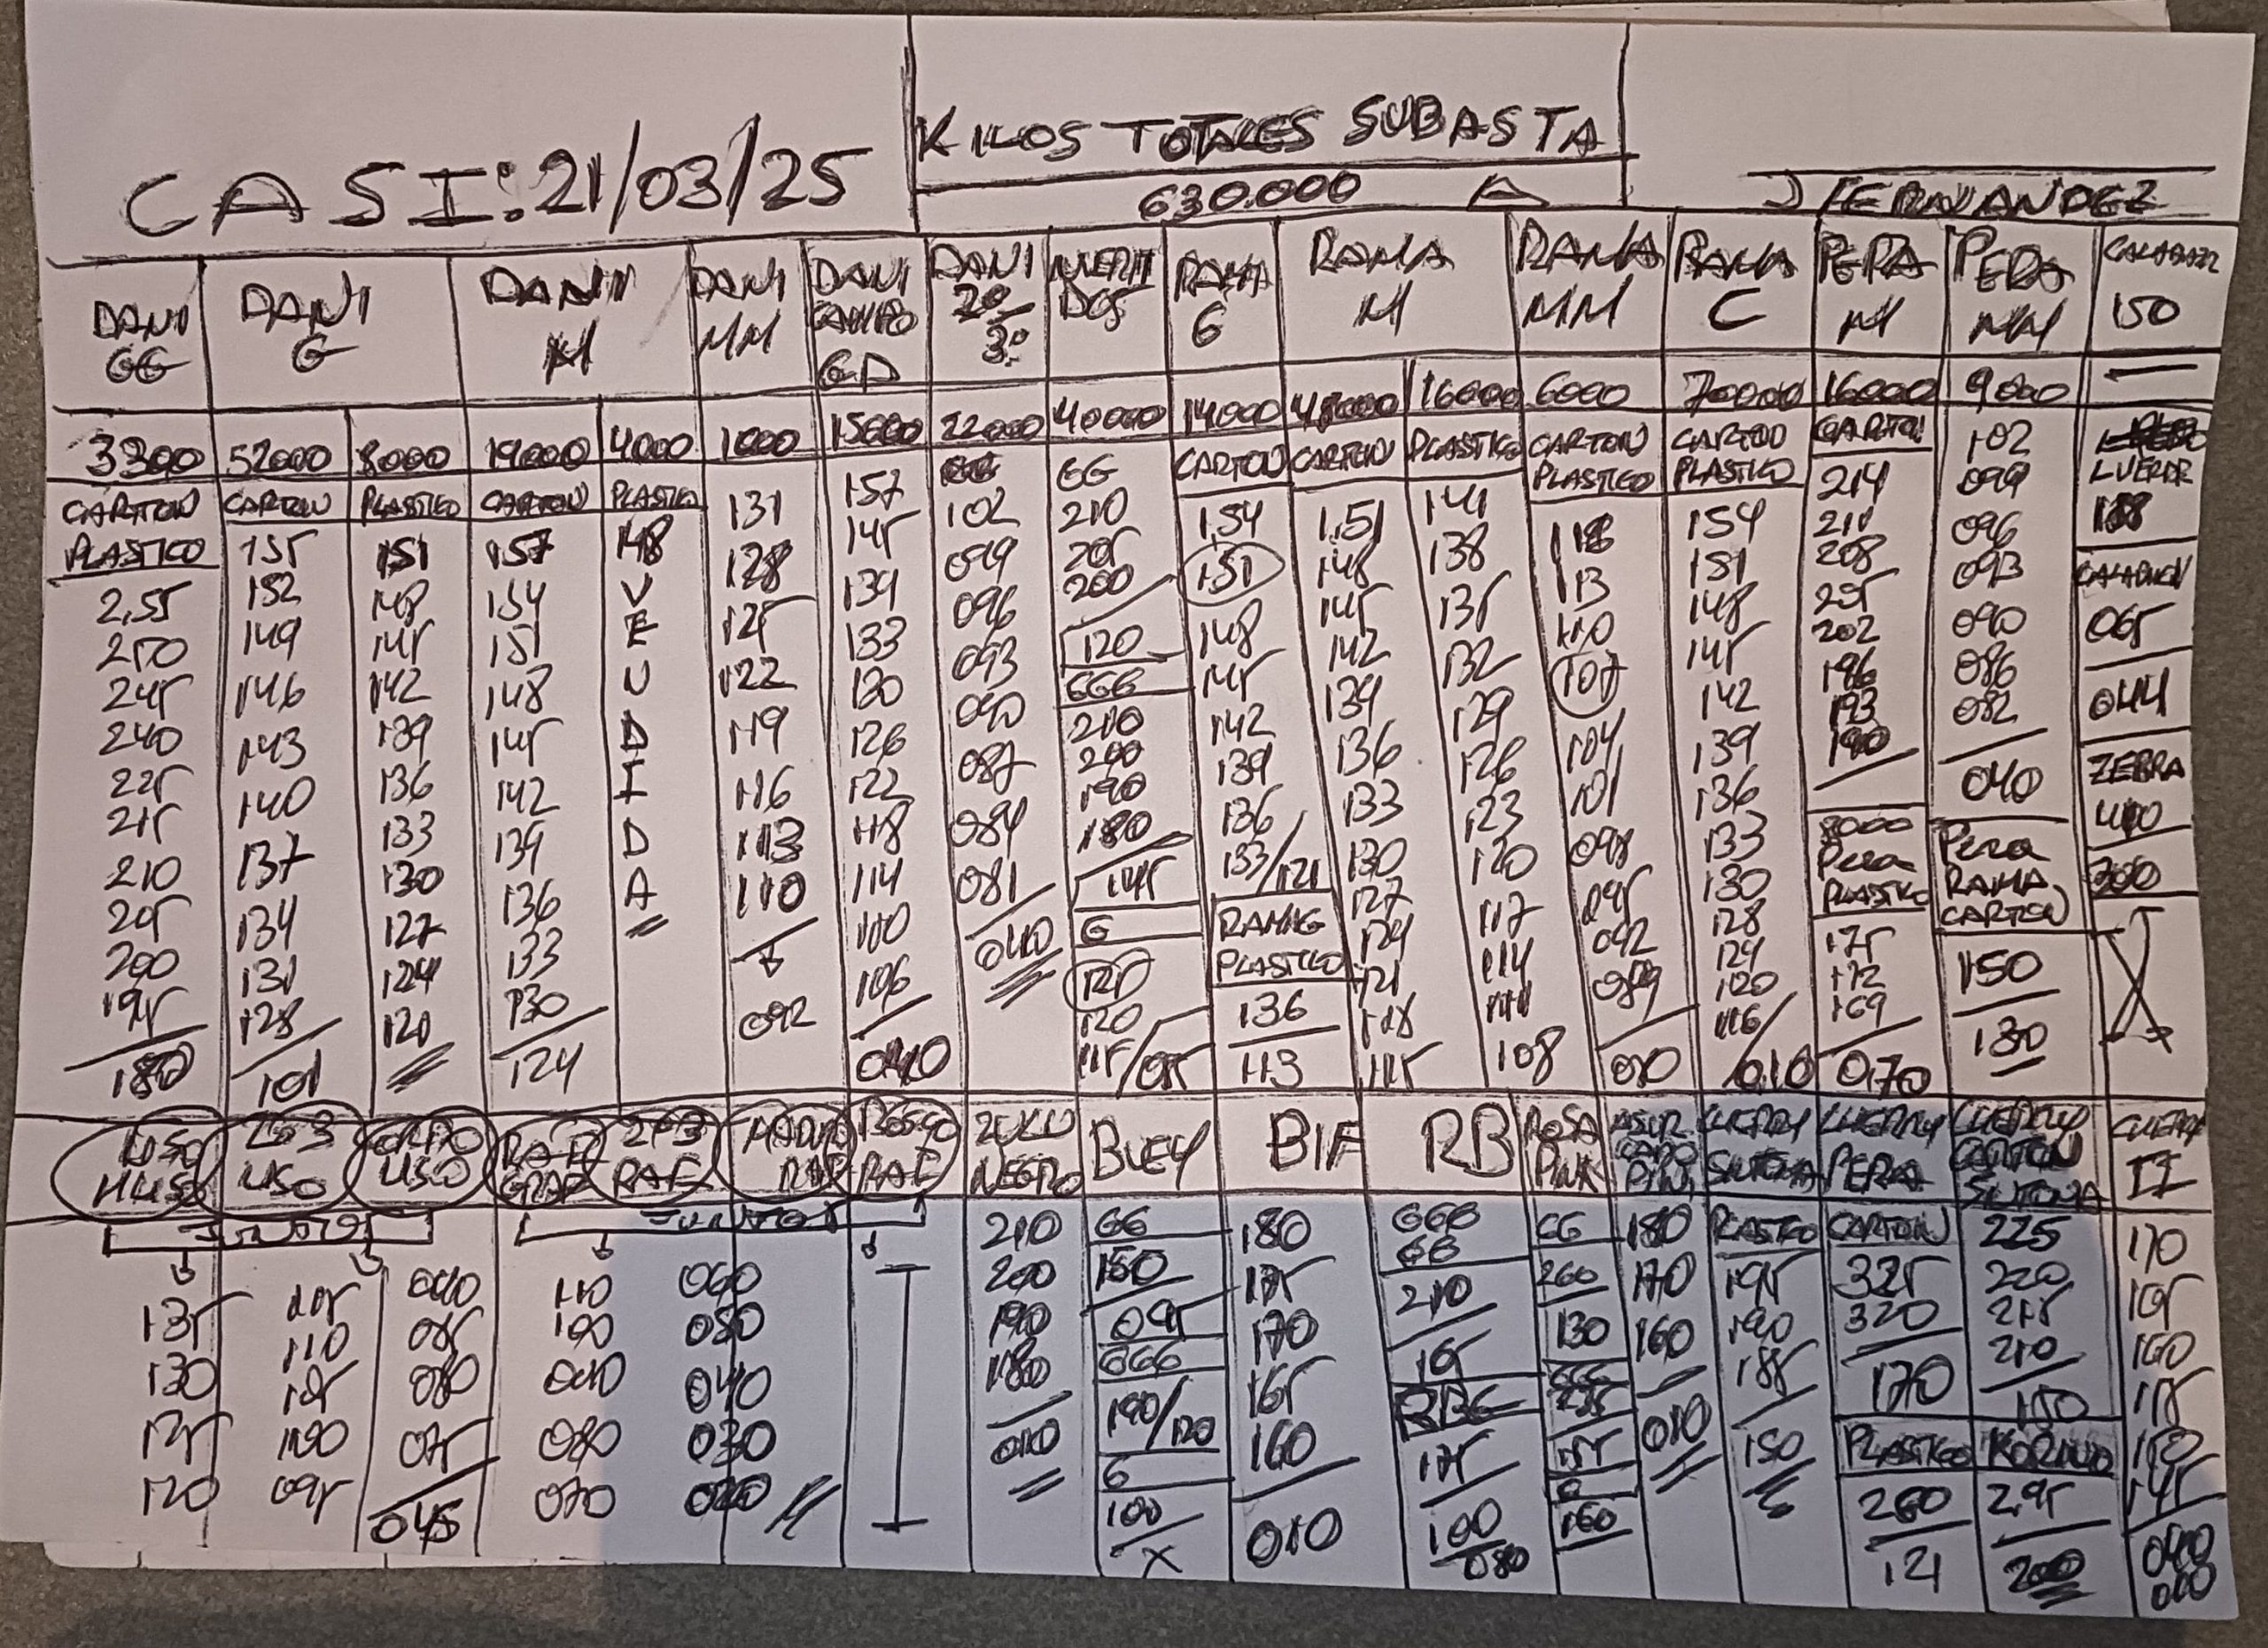 CASI: 21/03/25
KILOS TOTALES SUBASTA
630.000
J FERNANDEZ
DANI GG
DANI G
DANI M
DANI MM
DANI CAMPO GD
DANI 2º/3º
INVERTIDOS
RAMA G
RAMA M
RAMA MM
RAMA C
PERA M
PERA MM
150
3300 52000 8000 19000 4000 1000 15000 22000 40000 14000 48000 16000 6000 70000 16000 9000
CARTON PLASTICO
2,55
250
245
240
225
215
210
205
200
195
180
CARTON
155
152
149
146
143
140
137
134
131
128
101
PLASTICO
151
148
145
142
139
136
133
130
127
124
120
CARTON
157
154
151
148
145
142
139
136
133
130
124
PLASTICO
148
VENDIDA
131
128
125
122
119
116
113
110
092
157
145
139
133
130
126
122
118
114
110
106
040
102
099
096
093
090
087
084
081
040
GG
210
205
200
120
GGG
210
200
190
180
145
G
125
120
115/085
CARTON
1,54
1,51
148
145
142
139
136
133/121
RAMA G
PLASTICO
136
113
CARTON
1,51
148
145
142
139
136
133
130
127
124
121
118
115
PLASTICO
141
138
135
132
129
126
123
120
117
114
111
108
CARTON
PLASTICO
118
113
110
107
104
101
098
095
092
089
010
CARTON
PLASTICO
154
151
148
145
142
139
136
133
130
128
124
120
116/010
CARTON
214
211
208
205
202
196
193
190
8000
PERA
PLASTICO
175
172
169
070
102
099
096
093
090
086
082
040
PERA
RAMA
CARTON
150
130
065
044
ZEBRA
400
300
X
LISO
2 o 3
LISO
LISO
RAF
GRAF
2 o 3
RAF
RAF
RAF
JUNTO
135
130
125
120
110
105
100
095
090
085
080
075
045
JUNTO
110
100
090
080
070
060
080
040
030
020
NEGRO
210
200
190
180
010
BUEY
GG
150
095
GGG
190/120
G
100
X
BIF
180
175
170
165
160
010
RB
GGG
GG
210
165
RBG
175
100
080
ROSA
PINK
GG
260
130
GGG
G
160
180
170
160
010
CHERRY
PLASTICO
195
190
185
150
CHERRY
PERA
CARTON
325
320
170
PLASTICO
260
121
CHERRY
CARTON
225
220
215
210
150
295
200
CHERRY
II
170
165
160
155
150
145
040
010